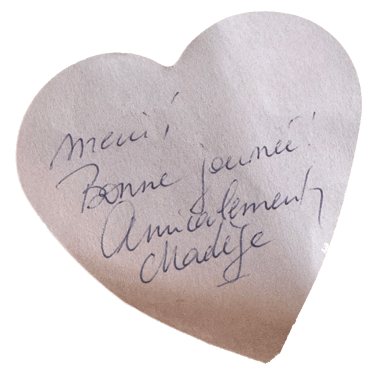 merci !
Bonne journée !
Amicalement
Madège